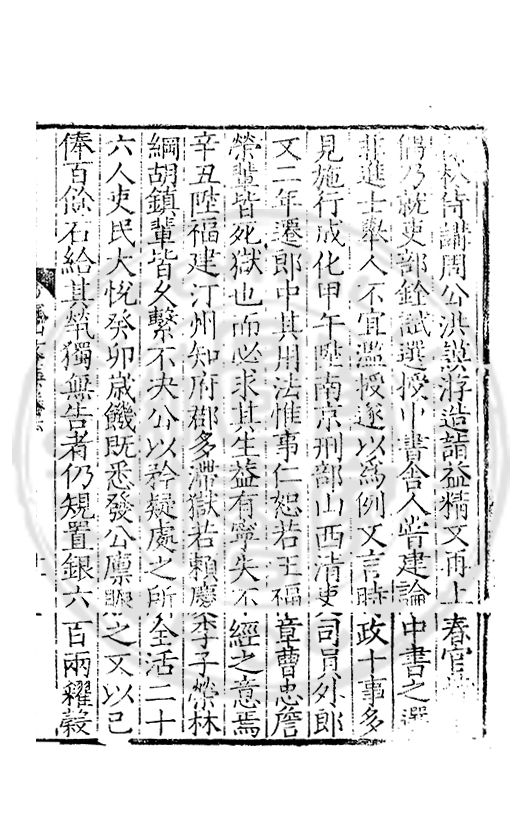 林侍講周公洪謨游造詣益精又再上春官
偶乃就吏部銓試選授中書舍人嘗建論中書之選
非進士舉人不宜濫授遂以為例又言時政十事多
見施行成化甲午陞南京刑部山西清吏司員外郎
又二年遷郎中其用法惟事仁恕若王福章曹忠詹
榮輩皆死獄也而必求其生益有寧失不經之意焉
辛丑陞福建汀州知府郡多滯獄若賴慶李子榮林
綱胡鎮輩皆久繫不决公以矜疑處之所全活二十
六人吏民大悅癸卯嵗饑既悉發公廩賑之又以已
俸百餘石給其煢獨無告者仍規置銀六百兩糴穀